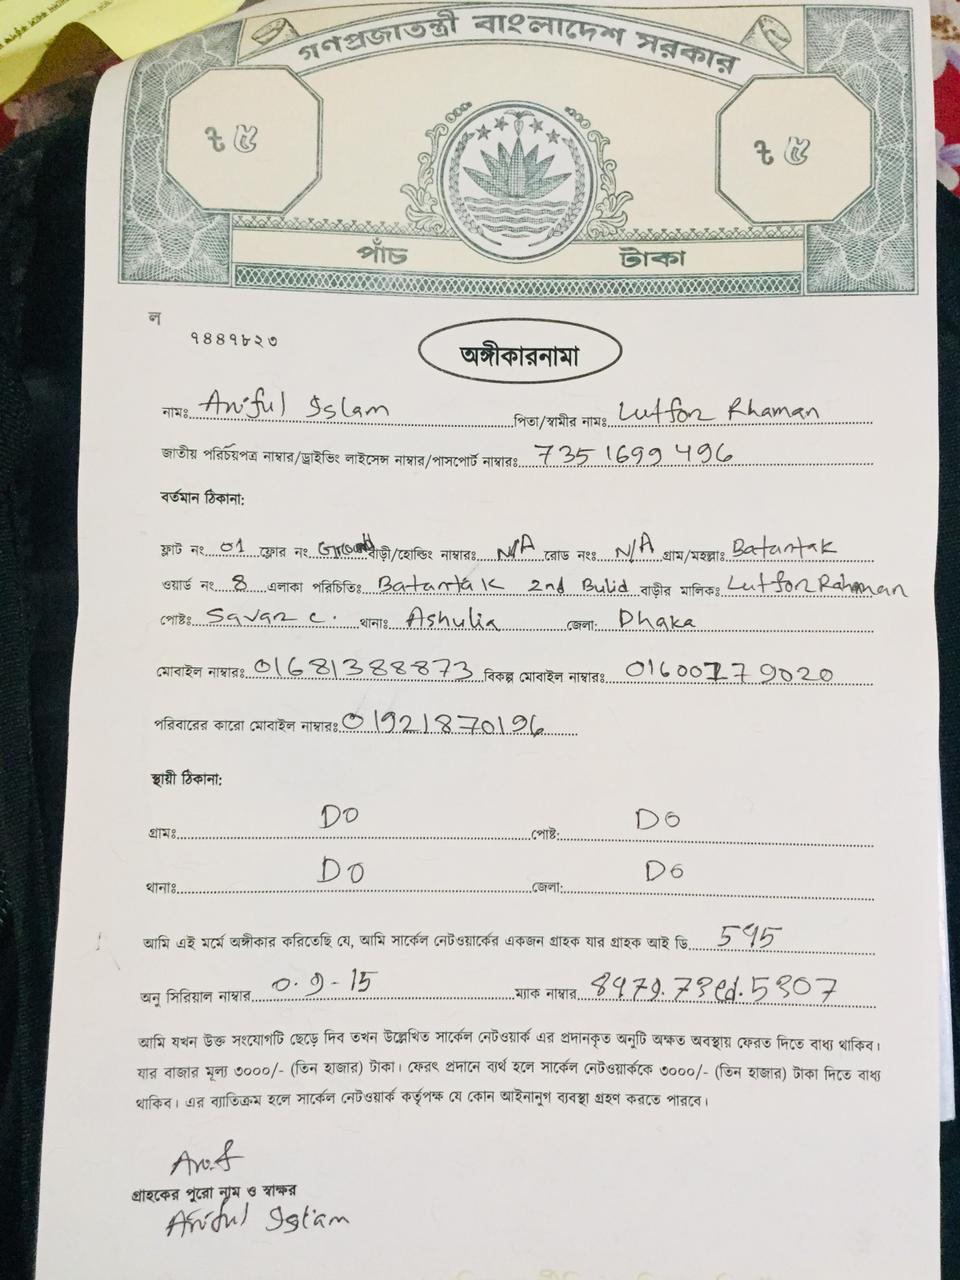 গণপ্রজাতন্ত্রী বাংলাদেশ সরকার
৳ ৫ ৳ ৫
পাঁচ টাকা
ল
৭৪৪৭৮২৩
অঙ্গীকারনামা
নামঃ Ariful Islam পিতা/স্বামীর নাম: Lutfor Rhaman
জাতীয় পরিচয়পত্র নাম্বার/ড্রাইভিং লাইসেন্স নাম্বার/পাসপোর্ট নাম্বারঃ 7351699496
বর্তমান ঠিকানা:
ফ্লাট নং 01 ফ্লোর নং Ground বাড়ী/হোল্ডিং নাম্বারঃ N/A রোড নংঃ N/A গ্রাম/মহল্লাঃ Batantak
ওয়ার্ড নং 8 এলাকা পরিচিতিঃ Batantak 2nd Bulid বাড়ীর মালিকঃ Lutfor Rahman
পোষ্টঃ Savar C. থানাঃ Ashulia জেলা: Dhaka
মোবাইল নাম্বারঃ 01681388873 বিকল্প মোবাইল নাম্বারঃ 01600179020
পরিবারের কারো মোবাইল নাম্বারঃ 01921870196
স্থায়ী ঠিকানা:
গ্রামঃ DO পোষ্ট: DO
থানাঃ DO জেলা: DO
আমি এই মর্মে অঙ্গীকার করিতেছি যে, আমি সার্কেল নেটওয়ার্কের একজন গ্রাহক যার গ্রাহক আই ডি 595
অনু সিরিয়াল নাম্বার 0.9-15 ম্যাক নাম্বার 8979.73ed.5307
আমি যখন উক্ত সংযোগটি ছেড়ে দিব তখন উল্লেখিত সার্কেল নেটওয়ার্ক এর প্রদানকৃত অনুটি অক্ষত অবস্থায় ফেরত দিতে বাধ্য থাকিব।
যার বাজার মূল্য ৩০০০/- (তিন হাজার) টাকা। ফেরৎ প্রদানে ব্যর্থ হলে সার্কেল নেটওয়ার্ককে ৩০০০/- (তিন হাজার) টাকা দিতে বাধ্য
থাকিব। এর ব্যাতিক্রম হলে সার্কেল নেটওয়ার্ক কর্তৃপক্ষ যে কোন আইনানুগ ব্যবস্থা গ্রহণ করতে পারবে।
Arif
গ্রাহকের পুরো নাম ও স্বাক্ষর
Ariful Islam